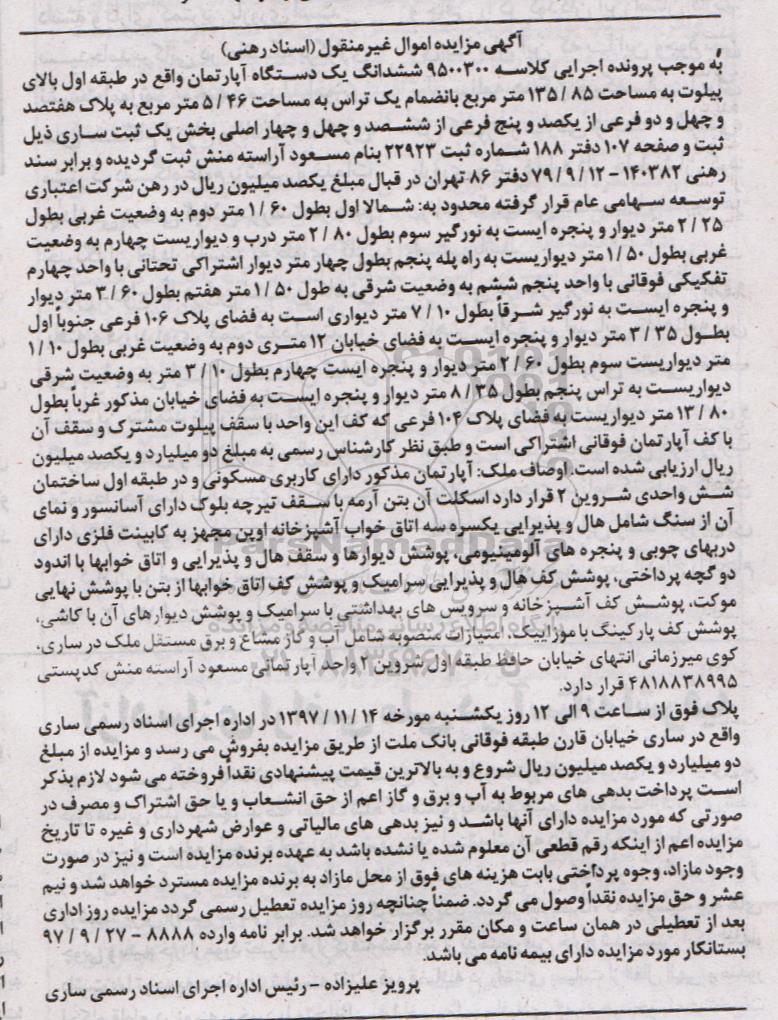 آگهی مزایده اموال غیرمنقول (اسناد رهنی)
به موجب پرونده اجرایی کلاسه ۹۵۰۰۳۰۰ ششدانگ یک دستگاه آپارتمان واقع در طبقه اول بالای
پیلوت به مساحت ۸۵ / ۱۳۵ متر مربع بانضمام یک تراس به مساحت ۴۶ / ۵ متر مربع به پلاک هفتصد
و چهل و دو فرعی از یکصد و پنج فرعی از ششصد و چهل و چهار اصلی بخش یک ثبت ساری ذیل
ثبت و صفحه ۱۰۷ دفتر ۱۸۸ شماره ثبت ۲۲۹۲۳ بنام مسعود آراسته منش ثبت گردیده و برابر سند
رهنی ۱۴۰۳۸۲ - ۱۲ / ۹ / ۷۹ دفتر ۸۶ تهران در قبال مبلغ یکصد میلیون ریال در رهن شرکت اعتباری
توسعه سهامی عام قرار گرفته محدود به: شمالا اول بطول ۶۰ / ۱ متر دوم به وضعیت غربی بطول
۲۵ / ۲ متر دیوار و پنجره ایست به نورگیر سوم بطول ۸۰ / ۲ متر درب و دیواریست چهارم به وضعیت
غربی بطول ۵۰ / ۱ متر دیواریست به راه پله پنجم بطول چهار متر دیوار اشتراکی تحتانی با واحد چهارم
تفکیکی فوقانی با واحد پنجم ششم به وضعیت شرقی به طول ۵۰ / ۱ متر هفتم بطول ۶۰ / ۳ متر دیوار
و پنجره ایست به نورگیر شرقاً بطول ۱۰ / ۷ متر دیواری است به فضای پلاک ۱۰۶ فرعی جنوباً اول
بطول ۳۵ / ۳ متر دیوار و پنجره ایست به فضای خیابان ۱۲ متری دوم به وضعیت غربی بطول ۱۰ / ۱
متر دیواریست سوم بطول ۶۰ / ۲ متر دیوار و پنجره ایست چهارم بطول ۱۰ / ۳ متر به وضعیت شرقی
دیواریست به تراس پنجم بطول ۳۵ / ۸ متر دیوار و پنجره ایست به فضای خیابان مذکور غرباً بطول
۸۰ / ۱۳ متر دیواریست به فضای پلاک ۱۰۴ فرعی که کف این واحد با سقف پیلوت مشترک و سقف آن
با کف آپارتمان فوقانی اشتراکی است و طبق نظر کارشناس رسمی به مبلغ دو میلیارد و یکصد میلیون
ریال ارزیابی شده است. اوصاف ملک: آپارتمان مذکور دارای کاربری مسکونی و در طبقه اول ساختمان
شش واحدی شروین ۲ قرار دارد اسکلت آن بتن آرمه با سقف تیرچه بلوک دارای آسانسور و نمای
آن از سنگ شامل هال و پذیرایی یکسره سه اتاق خواب آشپزخانه اوپن مجهز به کابینت فلزی دارای
دربهای چوبی و پنجره های آلومینیومی، پوشش دیوارها و سقف هال و پذیرایی و اتاق خوابها با اندود
دو گچه پرداختی، پوشش کف هال و پذیرایی سرامیک و پوشش کف اتاق خوابها از بتن با پوشش نهایی
موکت، پوشش کف آشپزخانه و سرویس های بهداشتی با سرامیک و پوشش دیوارهای آن با کاشی،
پوشش کف پارکینگ با موزاییک. امتیازات منصوبه شامل آب و گاز مشاع و برق مستقل ملک در ساری،
کوی میرزمانی انتهای خیابان حافظ طبقه اول شروین ۲ واحد آپارتمانی مسعود آراسته منش کدپستی
۴۸۱۸۸۳۸۹۹۵ قرار دارد.
پلاک فوق از ساعت ۹ الی ۱۲ روز یکشنبه مورخه ۱۴ / ۱۱ / ۱۳۹۷ در اداره اجرای اسناد رسمی ساری
واقع در ساری خیابان قارن طبقه فوقانی بانک ملت از طریق مزایده بفروش می رسد و مزایده از مبلغ
دو میلیارد و یکصد میلیون ریال شروع و به بالاترین قیمت پیشنهادی نقداً فروخته می شود لازم بذکر
است پرداخت بدهی های مربوط به آب و برق و گاز اعم از حق انشعاب و یا حق اشتراک و مصرف در
صورتی که مورد مزایده دارای آنها باشد و نیز بدهی های مالیاتی و عوارض شهرداری و غیره تا تاریخ
مزایده اعم از اینکه رقم قطعی آن معلوم شده یا نشده باشد به عهده برنده مزایده است و نیز در صورت
وجود مازاد، وجوه پرداختی بابت هزینه های فوق از محل مازاد به برنده مزایده مسترد خواهد شد و نیم
عشر و حق مزایده نقداً وصول می گردد. ضمناً چنانچه روز مزایده تعطیل رسمی گردد مزایده روز اداری
بعد از تعطیلی در همان ساعت و مکان مقرر برگزار خواهد شد. برابر نامه وارده ۸۸۸۸ - ۲۷ / ۹ / ۹۷
بستانکار مورد مزایده دارای بیمه نامه می باشد.
پرویز علیزاده - رئیس اداره اجرای اسناد رسمی ساری
ParsNamadData